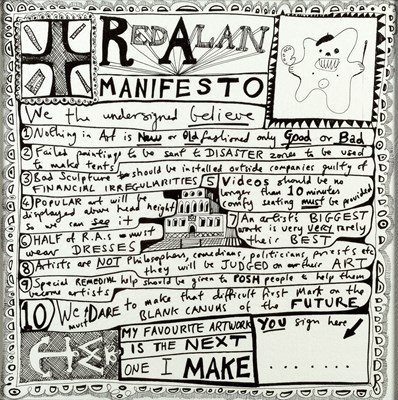 RED ALAN
MANIFESTO
We the undersigned believe
1 Nothing in Art is New or Old fashioned only Good or Bad
2 Failed paintings to be sent to DISASTER zones to be used
to make tents
3 Bad Sculpture to should be installed outside companies guilty of
FINANCIAL IRREGULARITIES
4 POPULAR art will
displayed above head height
so we can see it
5 Videos should be no
longer than 10 minutes
comfy seating must be provided
6 HALF of R.A.s must
wear DRESSES
7 An artists BIGGEST
work is very very rarely
their BEST
8 Artists are NOT Philosophers, comedians, politicians, priests etc
they will be JUDGED on their ART
9 Special REMEDIAL help should be given to POSH people to help them
become artists
10 We must DARE to make that difficult first mark on the
BLANK CANVAS of the FUTURE
MY FAVOURITE ARTWORK
IS THE NEXT
ONE I MAKE
YOU sign here
........